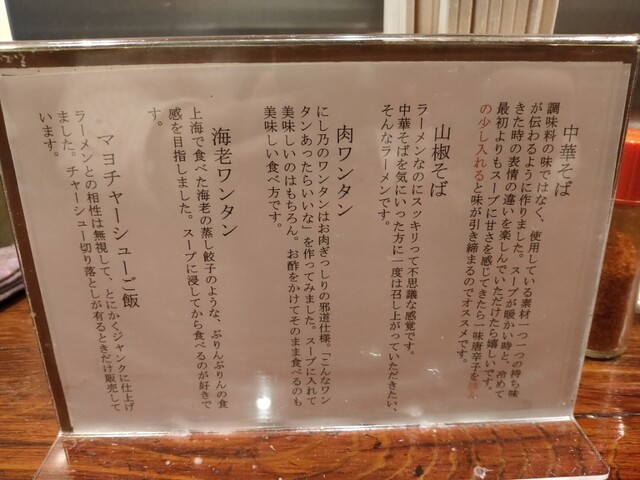 中華そば
調味料の味ではなく、使用している素材一つ一つの持ち味
が伝わるように作りました。スープが暖かい時と、冷めて
きた時の表情の違いを楽しんでいただけたら嬉しいです。
最初よりもスープに甘さを感じてきたら一味唐辛子を
の少し入れると味が引き締まるのでオススメです。
山椒そば
ラーメンなのにスッキリって不思議な感覚です。
中華そばを気にいった方に一度は召し上がっていただきたい、
そんなラーメンです。
肉ワンタン
にし乃のワンタンはお肉ぎっしりの邪道仕様。「こんなワン
タンあったらいいな」を作ってみました。スープに入れて
美味しいのはもちろん。お酢をかけてそのまま食べるのも
美味しい食べ方です。
海老ワンタン
上海で食べた海老の蒸し餃子のような、ぷりんぷりんの食
感を目指しました。スープに浸してから食べるのが好きで
す。
マヨチャーシューご飯
ラーメンとの相性は無視して、とにかくジャンクに仕上げ
ました。チャーシュー切り落としが有るときだけ販売して
います。